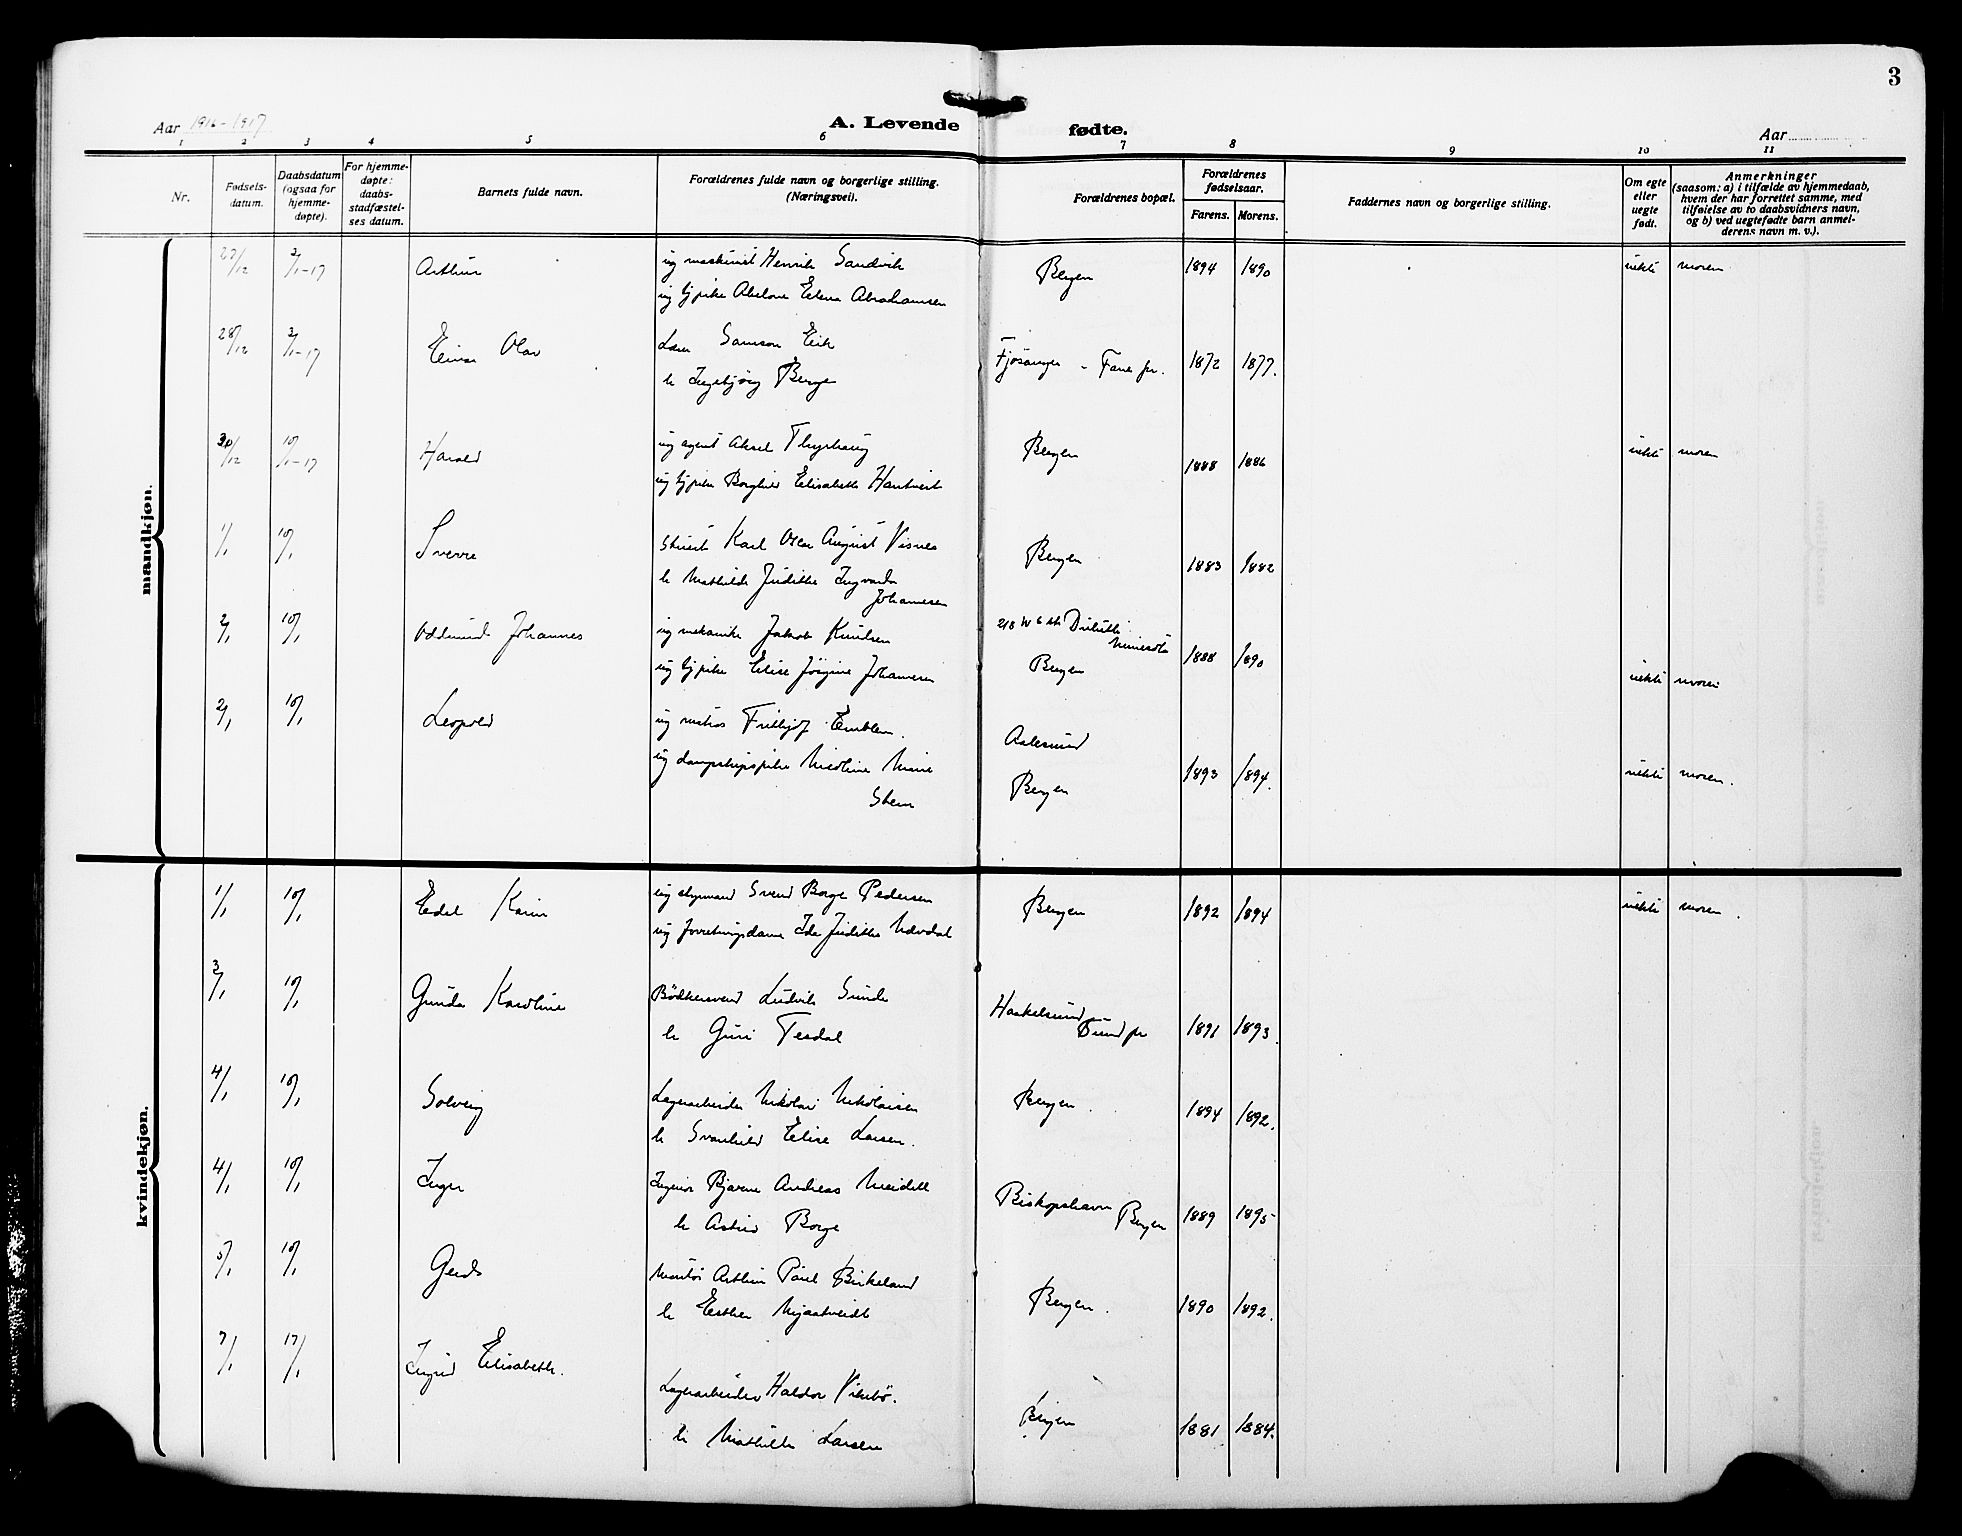 3
Aar 1916-1917
A. Levende fødte.
Aar
1 2 3 4 5 6 7 8 9 10 11
Nr.
Fødsels-
datum.
Daabsdatum
(ogsaa for
hjemme-
døpte).
For hjemme-
døpte:
daabs-
stadfæstel-
ses datum.
Barnets fulde navn.
Forældrenes fulde navn og borgerlige stilling.
(Næringsvei).
Forældrenes bopæl.
Forældrenes
fødselsaar.
Farens. Morens.
Faddernes navn og borgerlige stilling.
Om egte
eller
uegte
født.
Anmerkninger
(saasom: a) i tilfælde av hjemmedaab,
hvem der har forrettet samme, med
tilføielse av to daabsvidners navn,
og b) ved uegtefødte barn anmel-
derens navn m. v.).
mandkjøn.
27/12 2/1-17 Arthur ug maskinist Henrik Sandvik Bergen 1894 1890 uekte moren
ug tjpike Abelone Elena Abrahamsen
28/12 2/1-17 Einar Olav Samson Eik Fjøsanger - Fane pr. 1872 1877.
h Ingebjørg Berge
30/12 10/1-17 Harald ug agent Aksel Bergen 1888 1886 uekte moren
ug tjpike Borghild Elisabeth Hantveit
1/1 10/1 Sverre Stuert Karl Oscar August Visnes Bergen 1883 1882
h Mathilde Judithe Ingvarda
Johannesen
2/1 10/1 Oddmund Johannes ug mekanike Jakob Knudsen 218 W 6 str Duluth
Minesota 1888 1890
ug tjpike Elise Jørgine Johannesen Bergen uekte moren
2/1 10/1 Leopold ug matros Frithjof Emblem. Aalesund
ug dampskipspike Nicoline Marie Bergen 1893 1894. uekte moren.
Steen
kvindekjøn.
1/1 10/1 Edel Karin ug styrmand Svend Borge Pedersen Bergen 1892 1894 uekte moren.
ug forretningsdame Ida Judithe
3/1 10/1 Gunda Karoline Bødkersvend Ludvik Sunde Haakelsund
Sund pr 1891 1893.
h Guri Tesdal
4/1 10/1 Solveig Lagerarbeider Nikolai Nikolaisen Bergen. 1894 1892.
h Svanhild Elise Larsen.
4/1 10/1 Inger Ingeniør Bjarne Andreas Meidell Biskopshavn
Bergen 1889 1895
h Astrid Borge
5/1 10/1 Gerda Arthur Paul Birkeland Bergen. 1890 1892.
h Esther Mjaatveidt
7/1 17/1 Ingrid Elisabeth.
Lagerarbeider Haldor Vikebø. Bergen 1881 1884.
h Mathilde Larsen